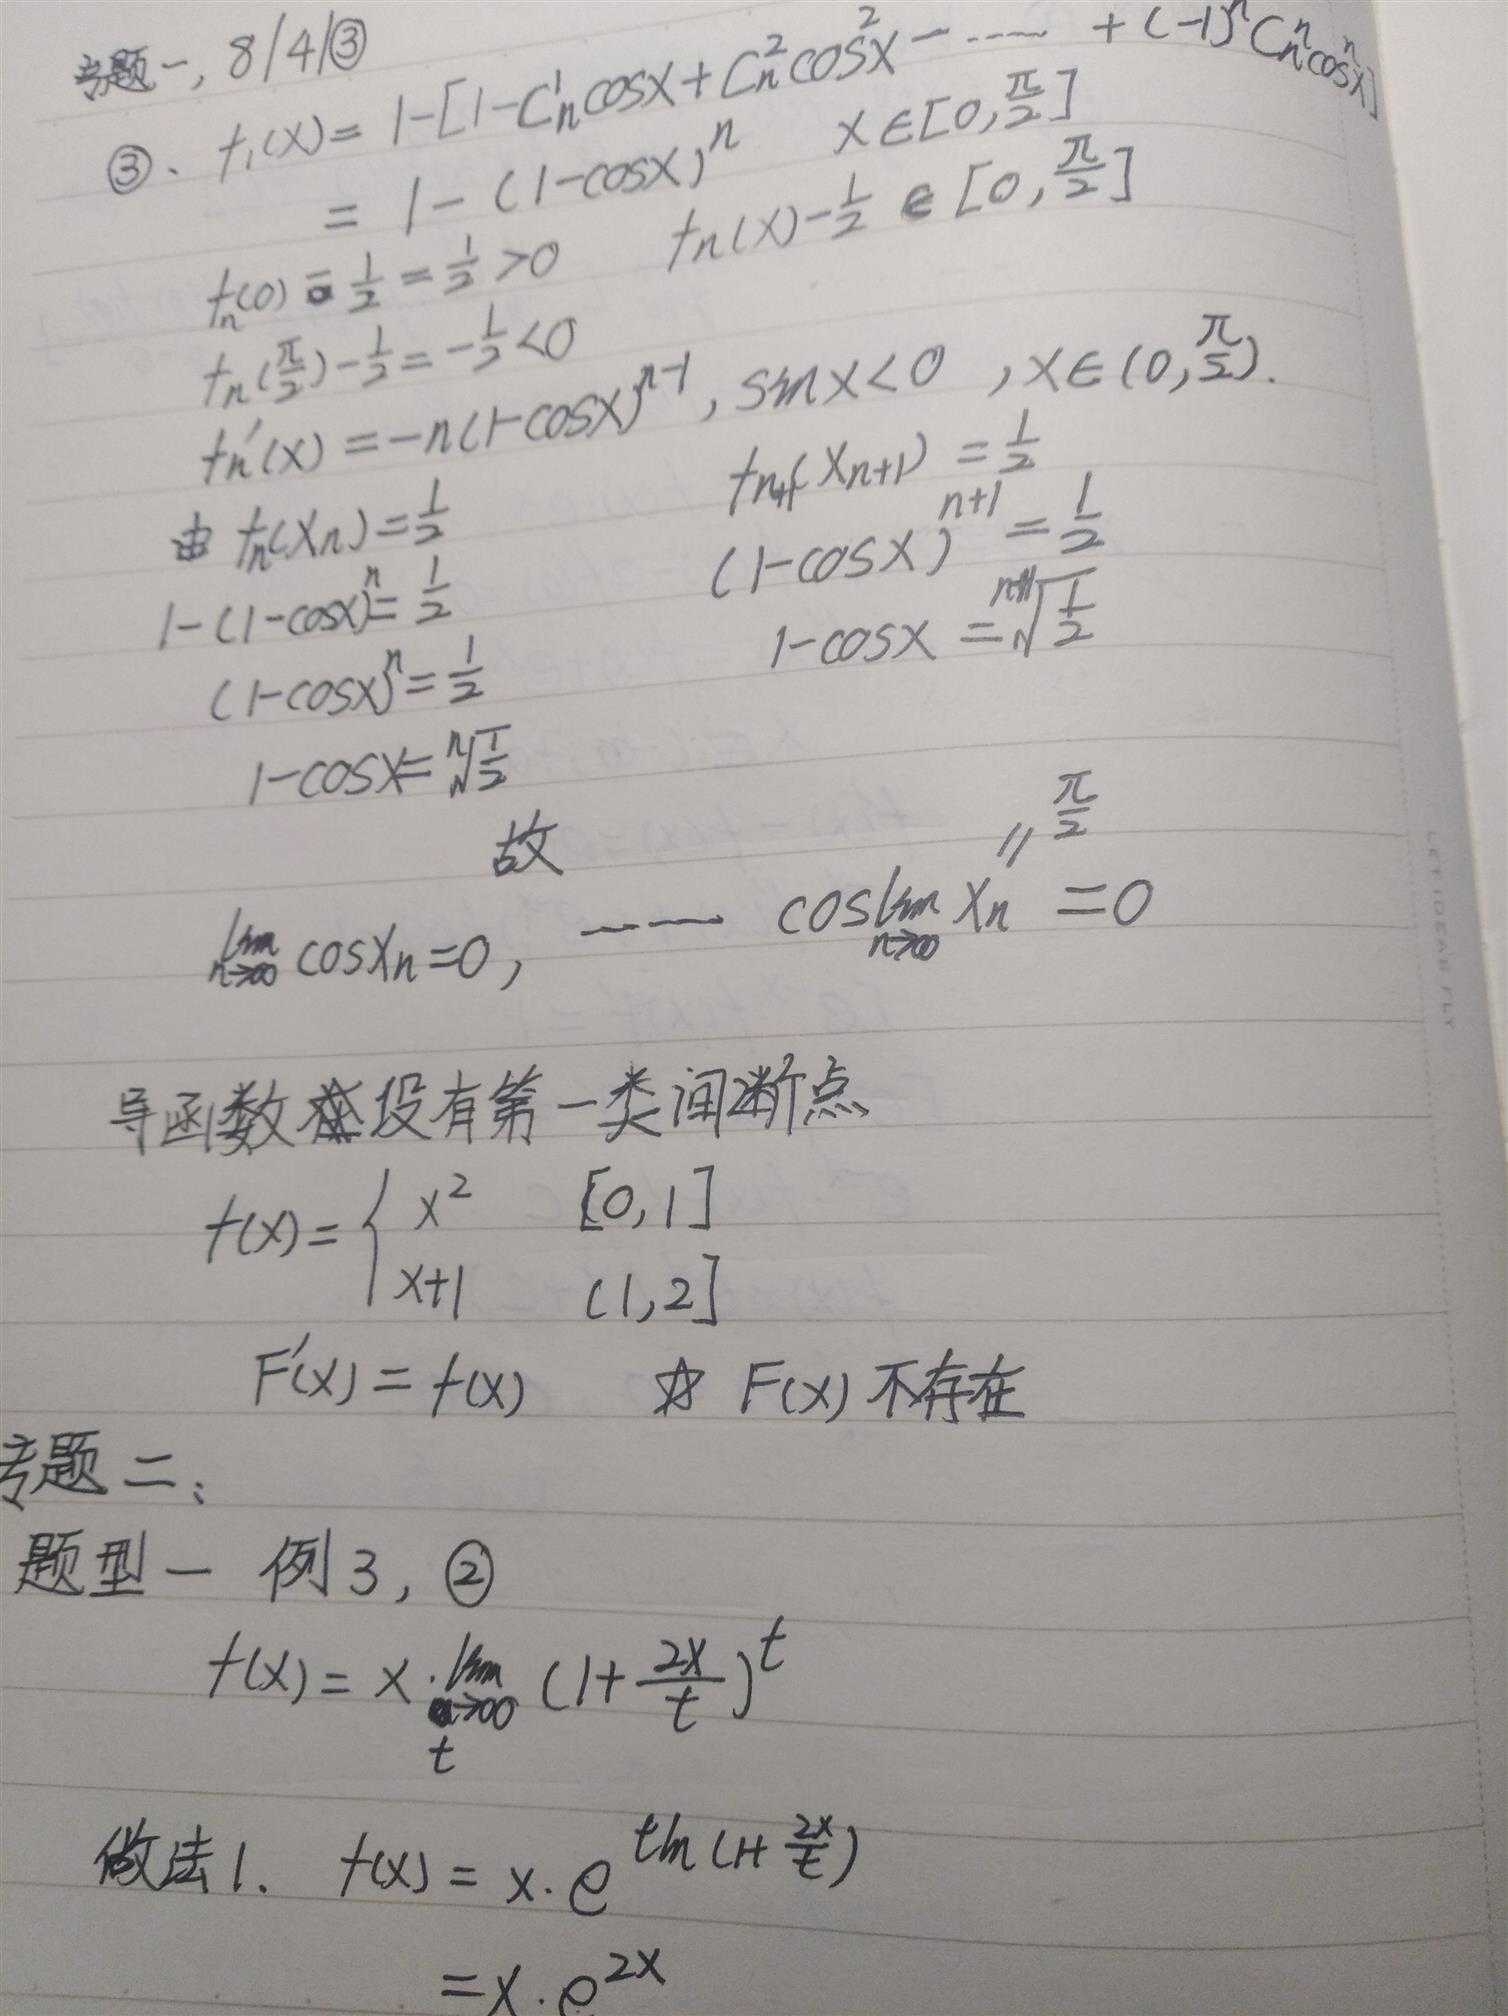 专题一, 8/4/③
③. f₁(x) = 1-[1-C¹ₙcosx+C²ₙcos²x-……+(-1)ⁿCⁿₙcosⁿx]
= 1-(1-cosx)ⁿ x∈[0,π/2]
fₙ(0)-1/2=1/2>0 fₙ(x)-1/2∈[0,π/2]
fₙ(π/2)-1/2=-1/2<0
fₙ'(x)=-n(1-cosx)ⁿ⁻¹, sinx<0, x∈(0,π/2).
由 fₙ(xₙ)=1/2 fₙ₊₁(xₙ₊₁)=1/2
1-(1-cosx)ⁿ=1/2 (1-cosx)ⁿ⁺¹=1/2
(1-cosx)ⁿ=1/2 1-cosx=ⁿ⁺¹√(1/2)
1-cosx=ⁿ√(1/2)
故 π/2
lim n→∞ cosxₙ=0, —— cos lim n→∞ xₙ=0
导函数没有第一类间断点
f(x)={ x² [0,1]
x+1 (1,2]
F'(x)=f(x) ☆ F(x)不存在
专题二、
题型一 例3, ②
f(x)=x·lim t→∞ (1+2x/t)ᵗ
做法1. f(x)=x·e^(tln(1+2x/t))
=x·e^(2x)